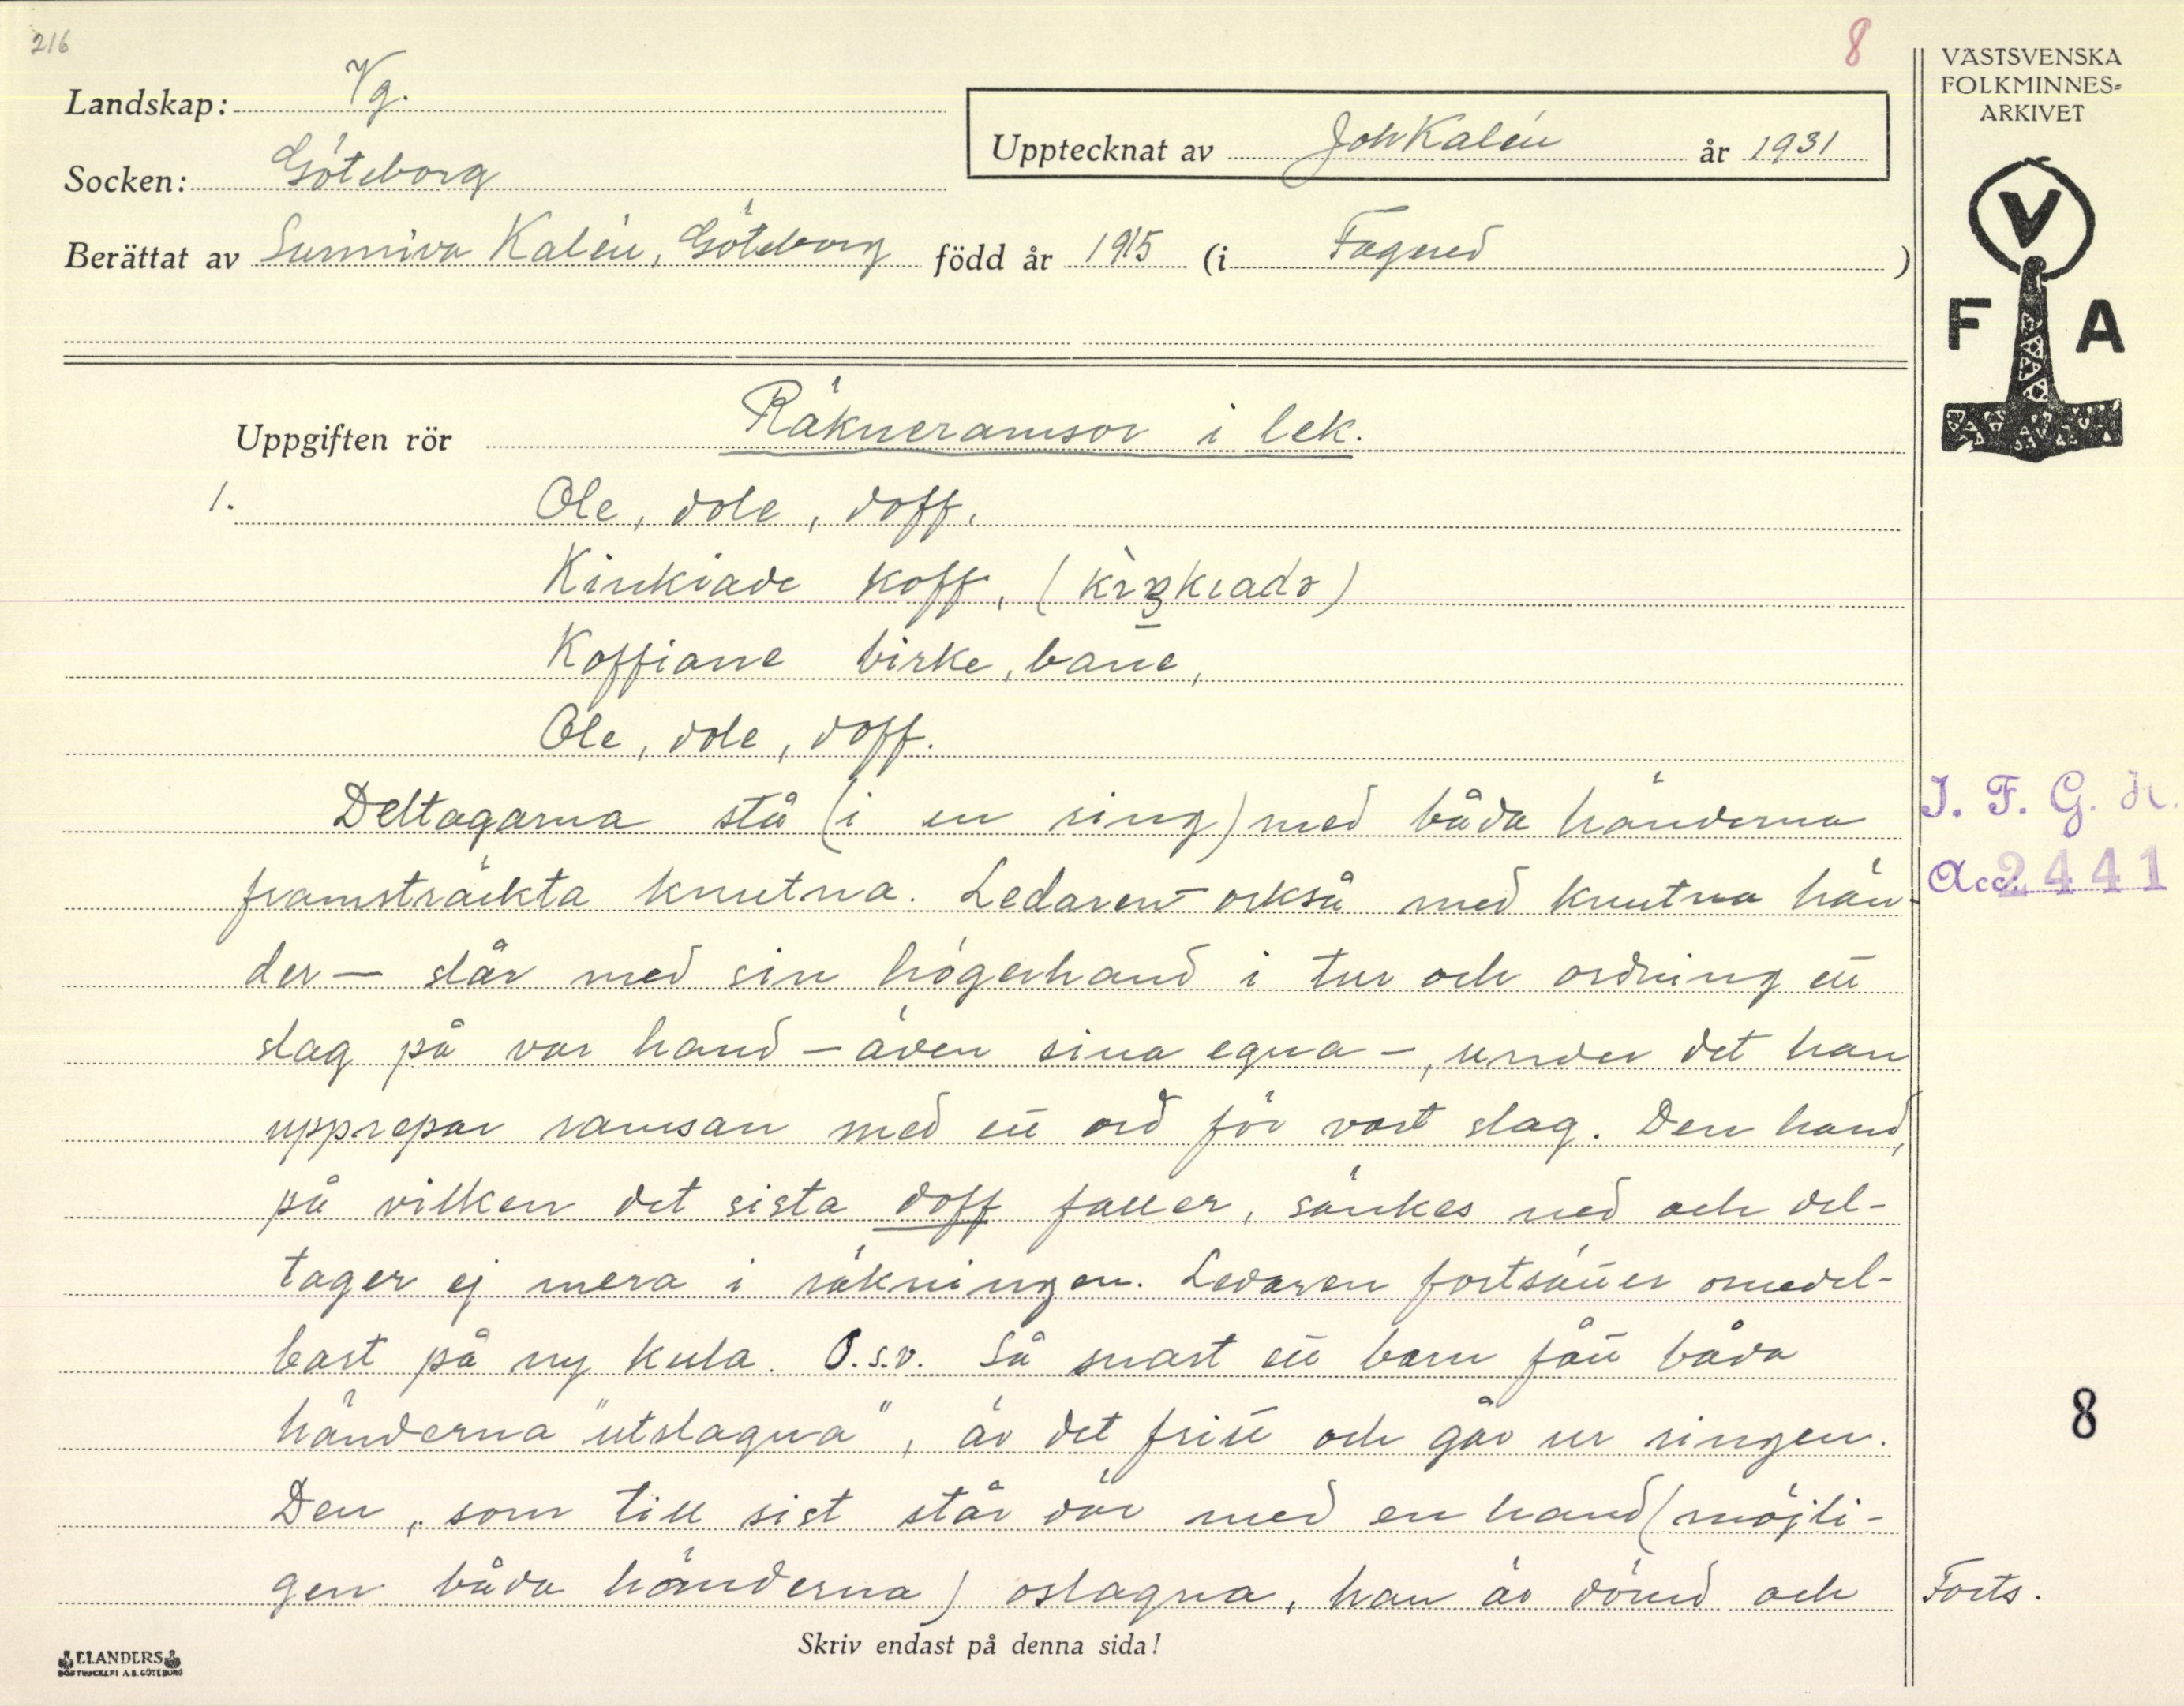 216
8
VÄSTSVENSKA
FOLKMINNES-
ARKIVET
Landskap: Vg.
Upptecknat av Joh Kalén år 1931
Socken: Göteborg
Berättat av Sunniva Kalén, Göteborg född år 1915 (i Fagered)
V
F A
Uppgiften rör Räkneramsor i lek.
1. Ole, dole, doff,
Kinkiade koff, (
Koffiane birke, bane,
Ole, dole, doff.
Deltagarna stå (i en ring) med båda händerna
framsträckta knutna. Ledaren – också med knutna hän-
der — slår med sin högerhand i tur och ordning ett
slag på var hand – även sina egna –, under det han
upprepar ramsan med ett ord för vart slag. Den hand,
på vilken det sista doff faller, sänkes ned och del-
tager ej mera i räkningen. Ledaren fortsätter omedel-
bart på ny kula. O.s.v. Så snart ett barn fått båda
händerna "utslagna", är det fritt och går ur ringen.
Den, som till sist står där med en hand (möjli-
gen båda händerna) oslagna, han är dömd och
J. F. G. K.
Acc. 2441
8
Forts.
Skriv endast på denna sida!
ELANDERS
BOKTRYCKERI A.B. GÖTEBORG